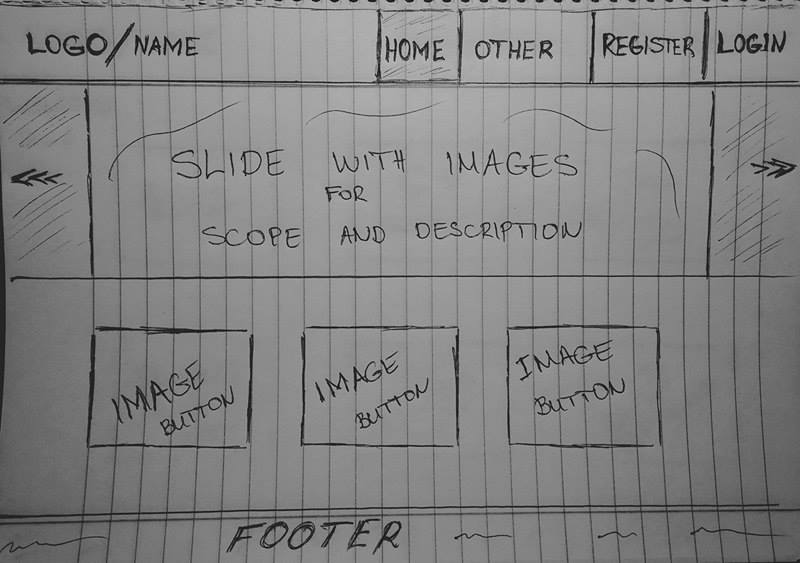 LOGO/NAME HOME OTHER REGISTER LOGIN
SLIDE WITH IMAGES
FOR
SCOPE AND DESCRIPTION
IMAGE
BUTTON
IMAGE
BUTTON
IMAGE
BUTTON
FOOTER